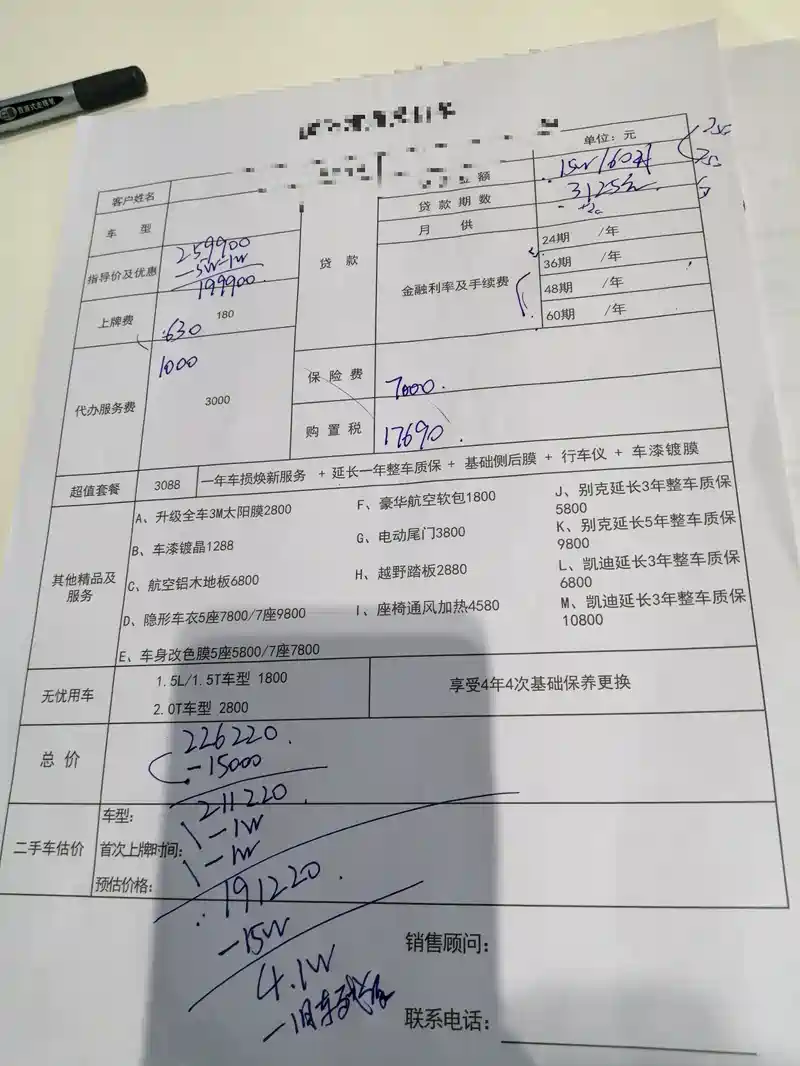 单位：元
客户姓名
车 型
指导价及优惠
259900
-5W-1W
199900
上牌费
630
180
代办服务费
1000
3000
贷 款
额
15W/60期
贷 款 期 数
3125元
月 供
金融利率及手续费
24期 /年
36期 /年
48期 /年
60期 /年
保 险 费
7000.
购 置 税
17690.
超值套餐
3088
一年车损焕新服务 + 延长一年整车质保 + 基础侧后膜 + 行车仪 + 车漆镀膜
其他精品及服务
A、升级全车3M太阳膜2800
B、车漆镀晶1288
C、航空铝木地板6800
D、隐形车衣5座7800/7座9800
E、车身改色膜5座5800/7座7800
F、豪华航空软包1800
G、电动尾门3800
H、越野踏板2880
I、座椅通风加热4580
J、别克延长3年整车质保
5800
K、别克延长5年整车质保
9800
L、凯迪延长3年整车质保
6800
M、凯迪延长3年整车质保
10800
无忧用车
1.5L/1.5T车型 1800
2.0T车型 2800
享受4年4次基础保养更换
总 价
226220.
-15000
211220.
二手车估价
车型：
-1W
首次上牌时间：
-1W
预估价格：
191220.
-15W
4.1W
销售顾问：
联系电话：